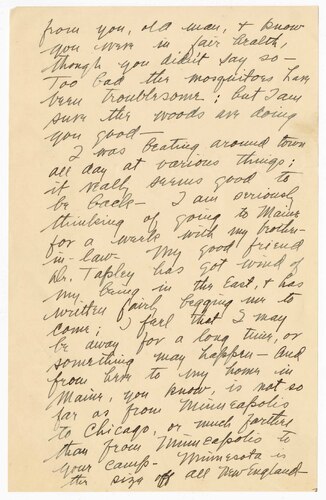 from you, old man, & know
you were in fair health,
though you didn't say so —
Too bad the mosquitoes have
been troublesome; but I am
sure the woods are doing
you good —
I was beating around town
all day at various things;
it really seems good to
be back — I am seriously
thinking of going to Maine
for a week with my brother-
in-law. My good friend
Dr. Tapley has got wind of
my being in the East, & has
written fairly begging me to
come; I feel that I may
be away for a long time, or
something may happen — and
from here to my home in
Maine, you know, is not so
far as from Minneapolis
to Chicago, or much farther
than from Minneapolis to
your camp. Minnesota is
the size of all New England —